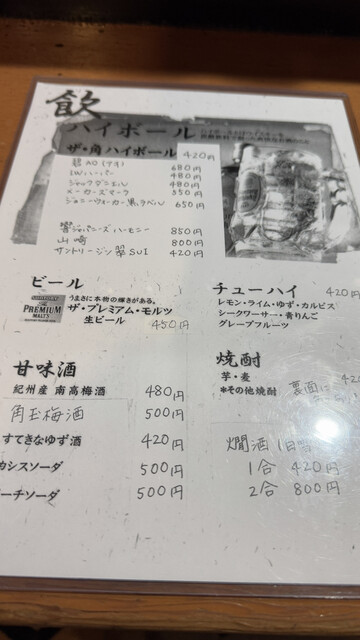 飲
ハイボール
ザ・角ハイボール 420円
碧AO(アオ) 680円
I.W.ハーパー 480円
ジャックダニエル 480円
メーカーズマーク 550円
ジョニーウォーカー黒ラベル 650円
響ジャパニーズハーモニー 850円
山崎 800円
サントリージン翠SUI 420円
ビール
THE PREMIUM MALT'S
うまさに本物の輝きがある。
ザ・プレミアム・モルツ
生ビール 450円
チューハイ 420円
レモン・ライム・ゆず・カルピス
シークワーサー・青りんご
グレープフルーツ
甘味酒
紀州産 南高梅酒 480円
角玉梅酒 500円
すてきなゆず酒 420円
カシスソーダ 500円
ピーチソーダ 500円
焼酎
芋・麦 420
*その他焼酎 裏面に
燗酒
1合 420円
2合 800円